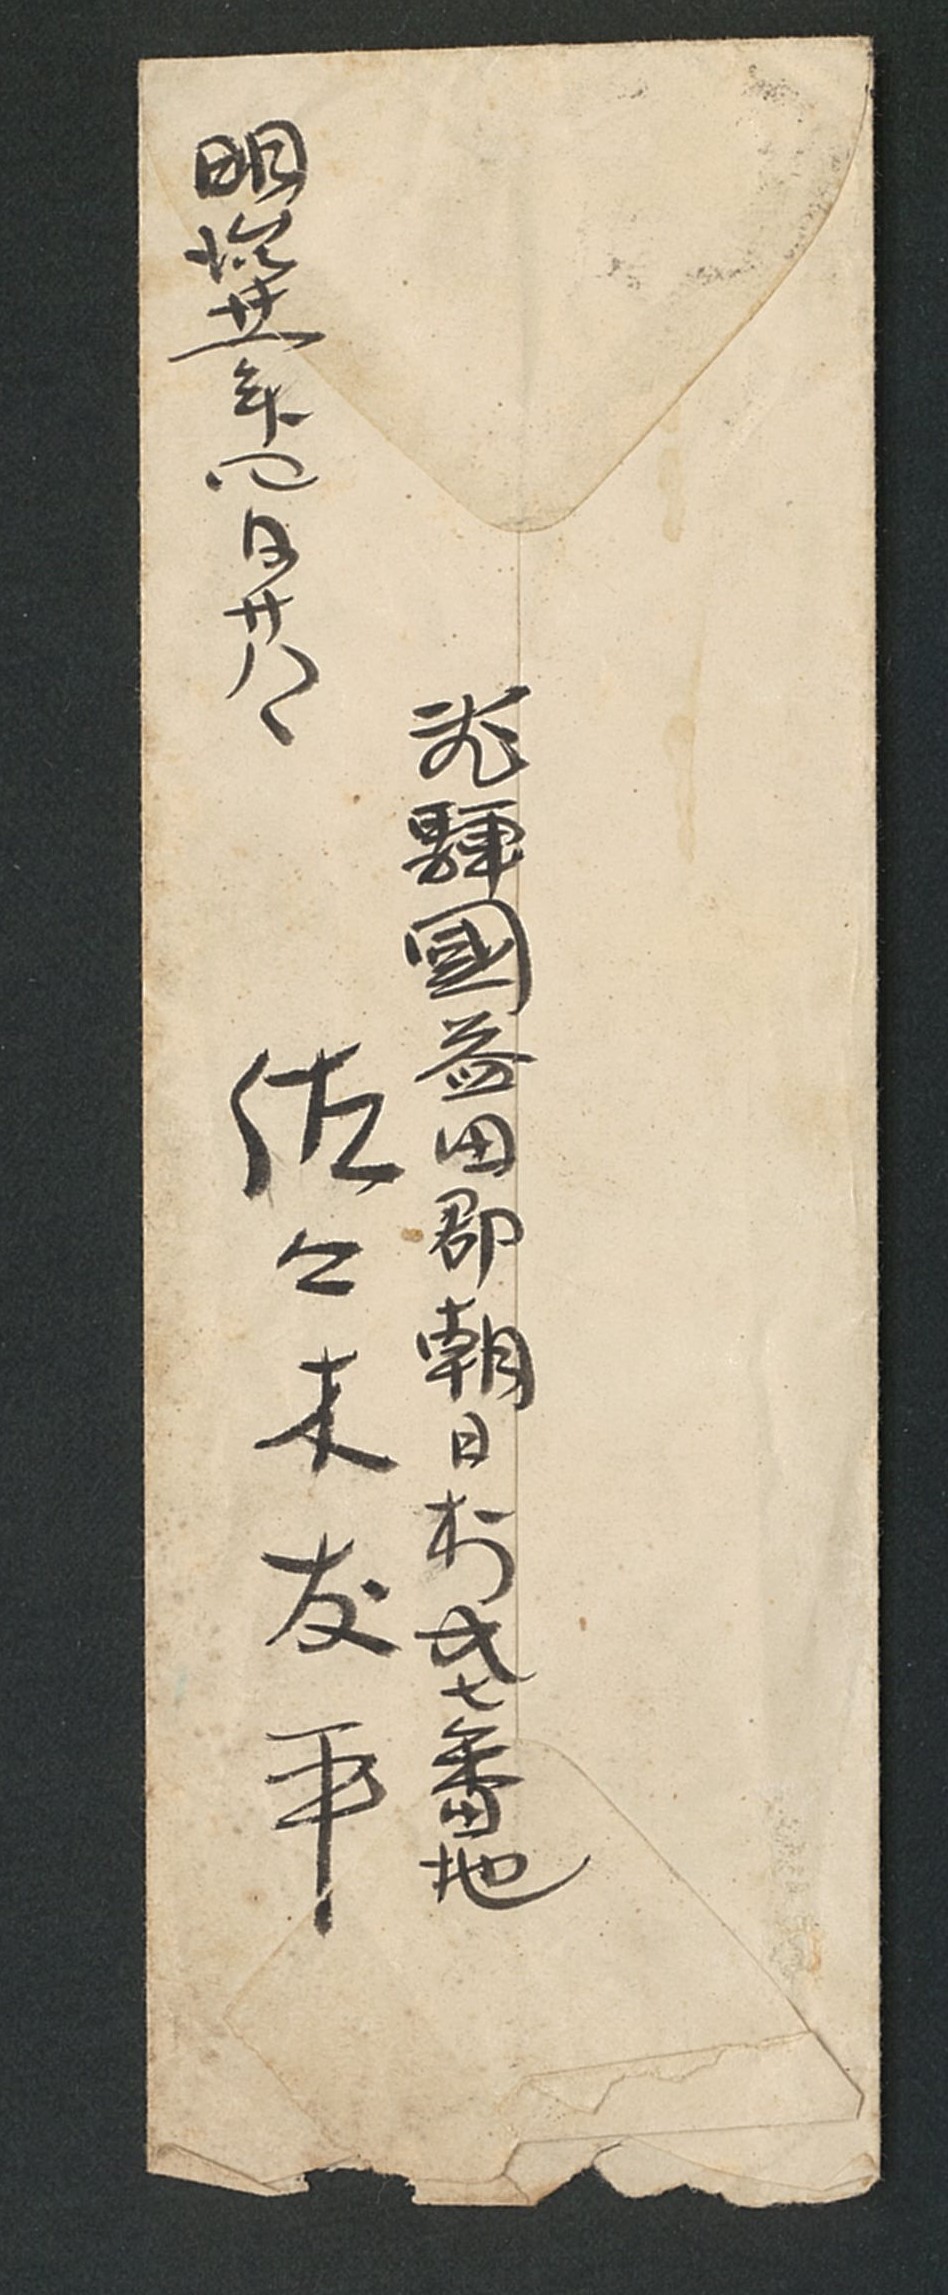 飛驒國益田郡朝日村弐七番地
佐々木友平
明治廿五年四月廿八日